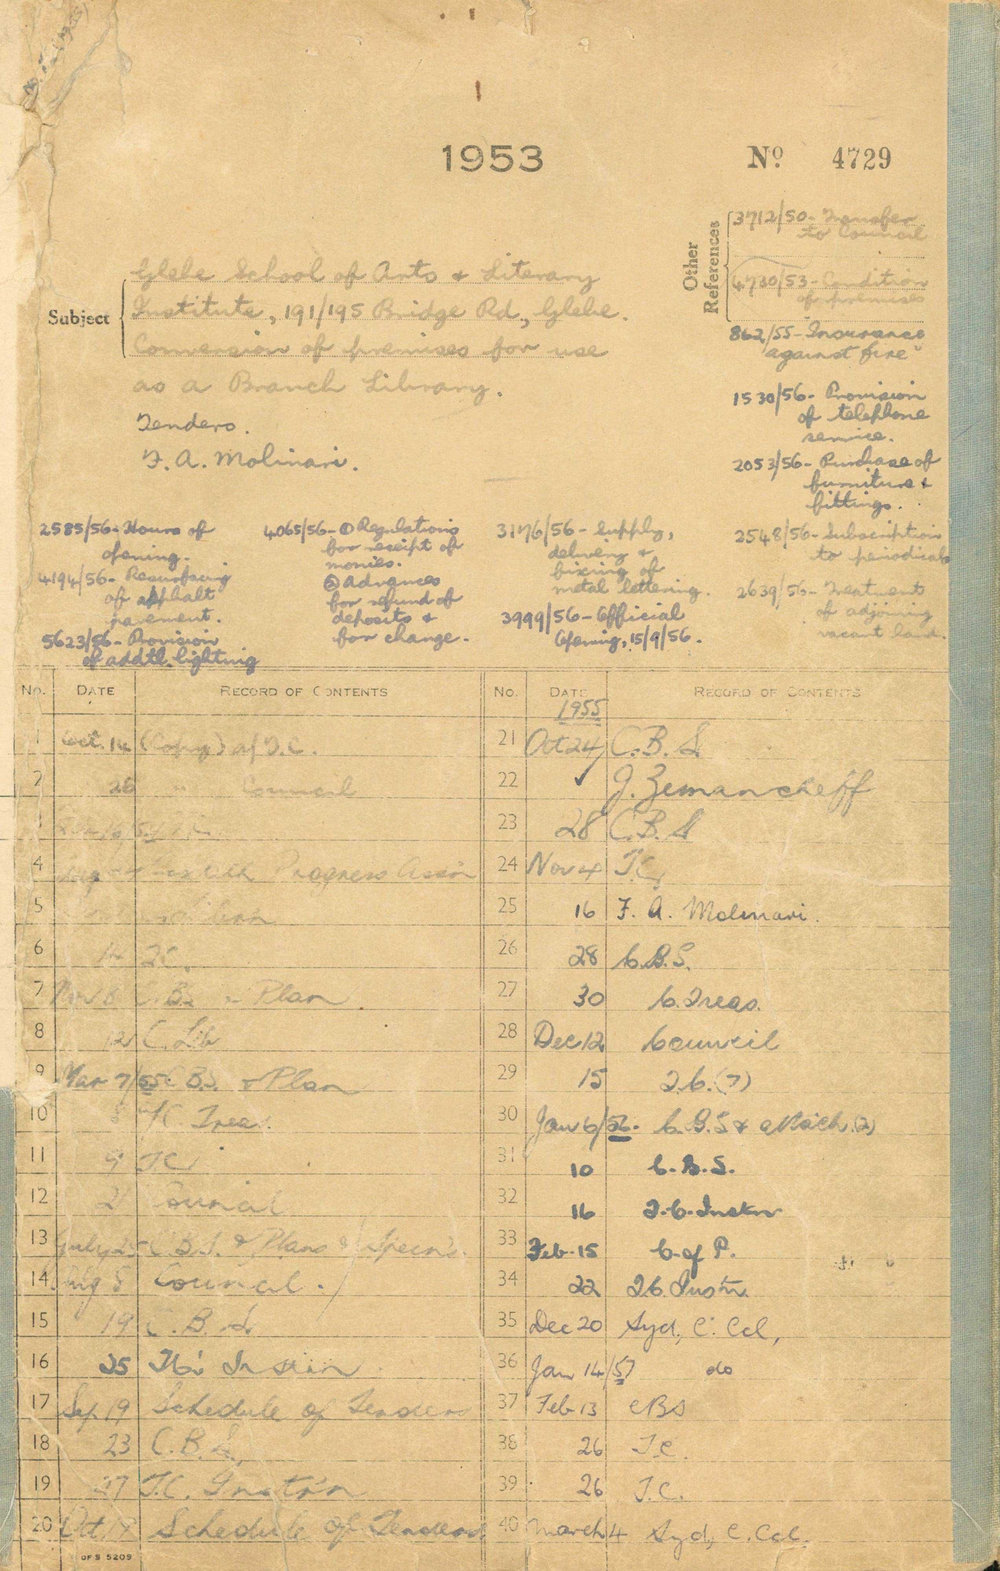 1953
No 4729
Other References
3712/50- Transfer
to Council
4730/53- Condition
of premises
862/55- Insurance
against fire
1530/56- Provision
of telephone
service.
2053/56- Purchase of
furniture &
fittings.
2548/56- Subscription
to periodicals
2639/56- Treatment
of adjoining
vacant land.
Subject
Glebe School of Arts & Literary
Institute, 191/195 Bridge Rd., Glebe.
Conversion of premises for use
as a Branch Library.
Tenders.
F. A. Molinari.
2585/56- Hours of
opening.
4194/56- Resurfacing
of asphalt
pavement.
5623/56- Provision
of addtl. lighting
4065/56- ① Regulations
for receipt of
monies.
② Advances
for refund of
deposits &
for change.
3176/56- Supply,
delivery &
fixing of
metal lettering.
3999/56- Official
Opening, 15/9/56.
No. DATE RECORD OF CONTENTS
1 Oct. 14 (Copy) of T.C.
2 26 Council
4 Progress Assn
5
6 14 T.C.
7 Nov 8 C.B.S. & Plan
8 12 C. Lib
9 Mar 7/55 C.B.S. & Plan
10 8 C. Treas.
11 9 T.C.
12 21 Council
13 July 25 C.B.S. & Plans & Specn's.
14 Aug 8 Council.
15 19 C.B.S.
16 25 T.C. Instn
17 Sep 19 Schedule of Tenders
18 23 C.B.S.
19 27 T.C. Inst'n
20 Oct 19 Schedule of Tenders
OF S 5209
No. DATE RECORD OF CONTENTS
1955
21 Oct 24 C.B.S.
22 ✓ J. Zemancheff
23 28 C.B.S
24 Nov 4 T.C.
25 16 F. A. Molinari.
26 28 C.B.S.
27 30 C. Treas.
28 Dec 12 Council
29 15 T.C. (7)
30 Jan 6/56. C.B.S &
31 10 C.B.S.
32 16 T.C. Instn
33 Feb-15 C. of P.
34 22 T.C. Instn.
35 Dec 20 Syd. C. Ccl,
36 Jan 14/57 do
37 Feb-13 CBS
38 26 T.C.
39 26 T.C.
40 March 4 Syd, C. Ccl.